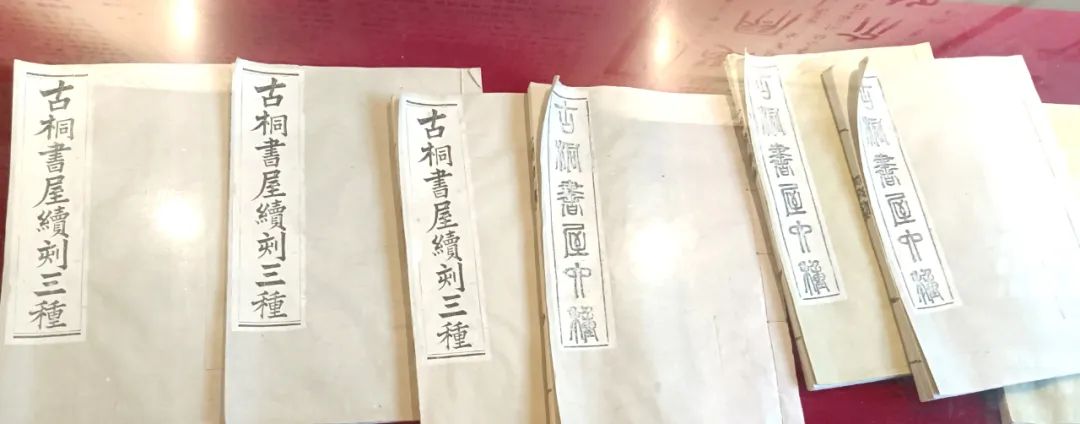 古桐書屋續刻三種
古桐書屋續刻三種
古桐書屋續刻三種
古桐書屋六種
古桐書屋六種
古桐書屋六種